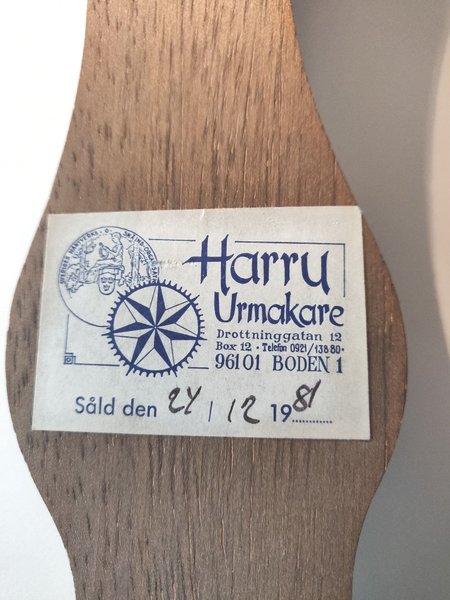 Harru
Urmakare
Drottninggatan 12
Box 12 · Telefon 0921/138 80 ·
961 01 BODEN 1
Såld den 24 / 12 1981